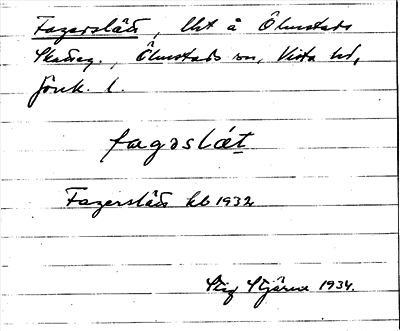 Fagerslätt, lht å Ölmstads
Skatteg., Ölmstads sn, Vista hd,
Jönk. l.
fagəslæt
Fagerslätt kb 1932
Stig Stjärne 1934.